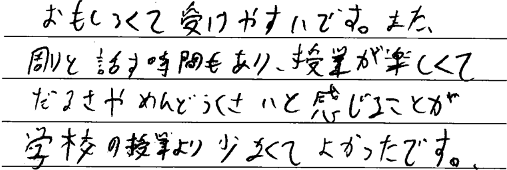 おもしろくて受けやすいです。また、
周りと話す時間もあり、授業が楽しくて
だるさやめんどうくさいと感じることが
学校の授業より少なくてよかったです。